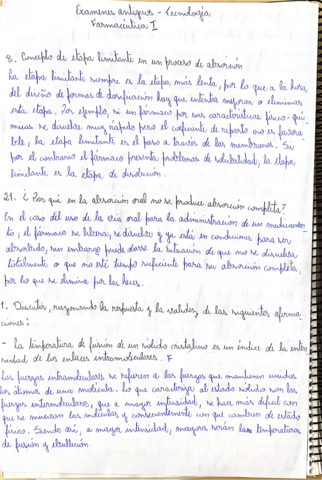 Exámenes antiguos - Tecnología
Farmacéutica I
8. Concepto de etapa limitante en un proceso de absorción
La etapa limitante siempre es la etapa más lenta, por lo que a la hora
del diseño de formas de dosificación hay que intentar mejorar o eliminar
esta etapa. Por ejemplo, si un fármaco por sus características físico-quí-
micas se disuelve muy rápido pero el coeficiente de reparto no es favora-
ble, la etapa limitante es el paso a través de las membranas. Si
por el contrario el fármaco presenta problemas de solubilidad, la etapa
limitante es la etapa de disolución.
21. ¿Por qué en la absorción oral no se produce absorción completa?
En el caso del uso de la vía oral para la administración de un medicamen-
to, el fármaco se libera, se disuelve y ya está en condiciones para ser
absorbido, sin embargo puede darse la situación de que no se disuelva
totalmente o que no esté tiempo suficiente para su absorción completa,
por lo que se elimina por las heces.
1. Discutir, razonando la respuesta y la validez de las siguientes afirma-
ciones:
- La temperatura de fusión de un sólido cristalino es un índice de la inten-
sidad de los enlaces intramoleculares. F
Las fuerzas intramoleculares se refieren a las fuerzas que mantienen unidos
los átomos de una molécula. Lo que caracteriza al estado sólido son las
fuerzas intermoleculares, que a mayor intensidad, se hace más difícil con
que se muevan las moléculas y consecuentemente con que cambien de estado
físico. Siendo así, a mayor intensidad, mayores serán las temperaturas
de fusión y ebullición.